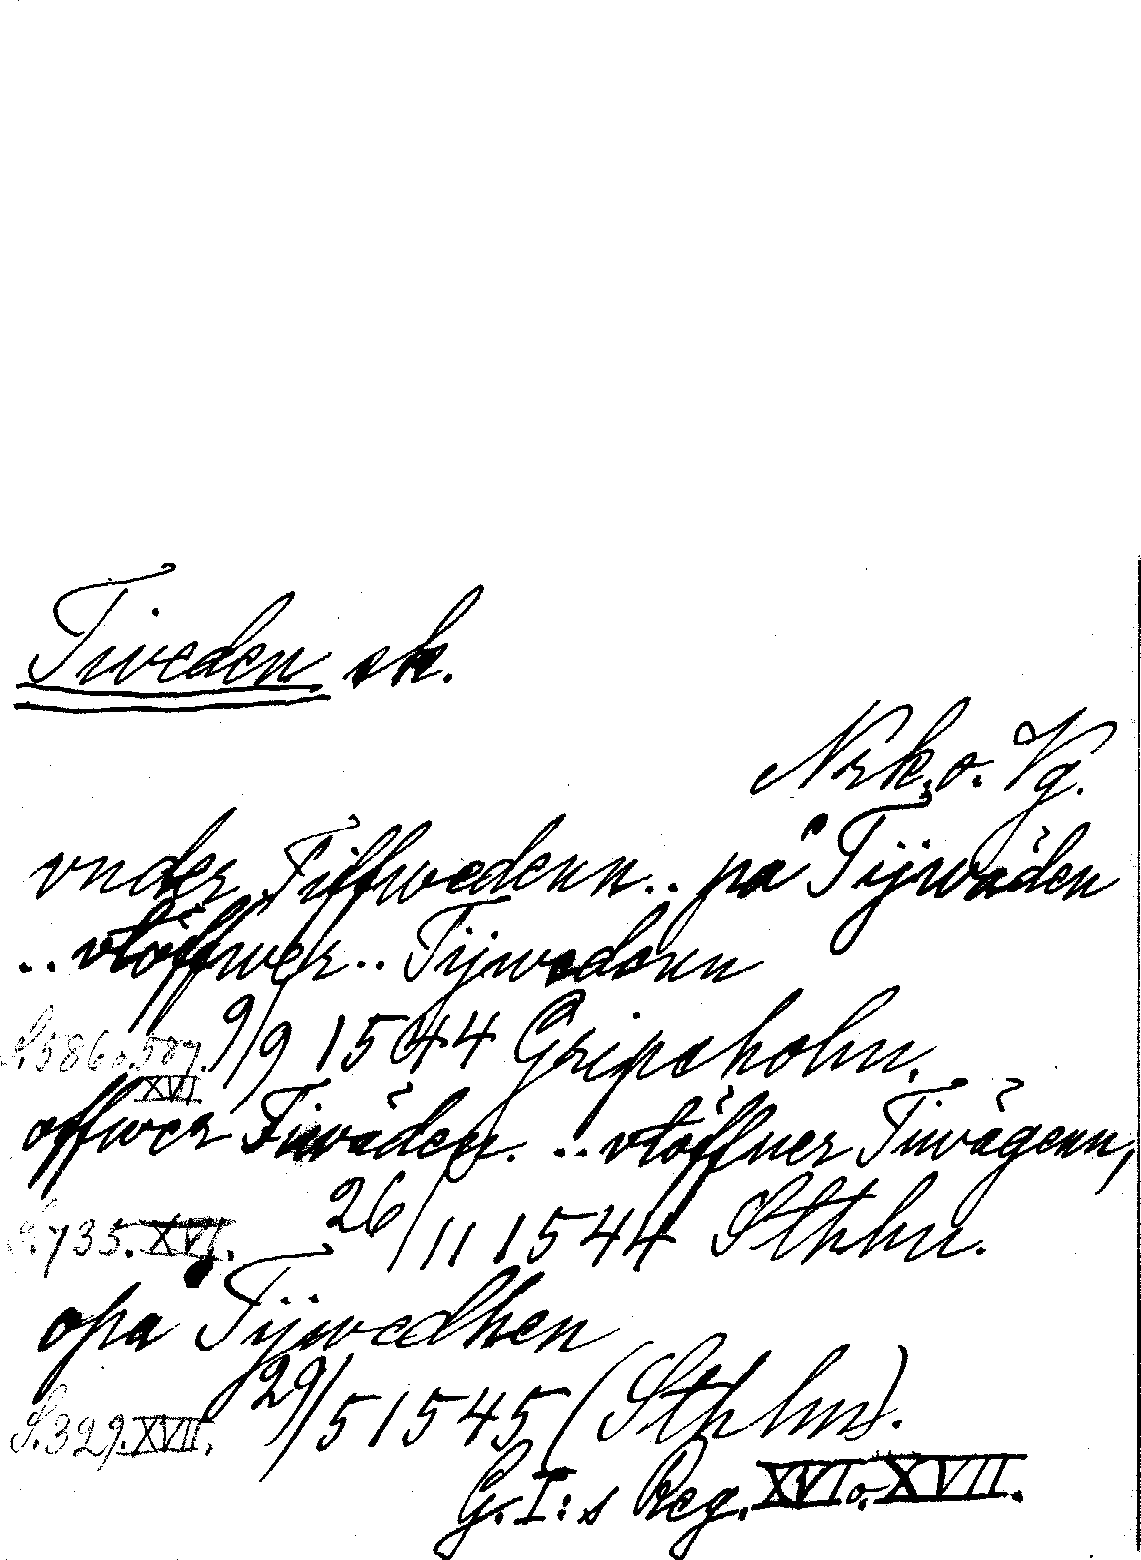 Tiveden sk.
Nrk. o. Vg.
vnder Tiffwedenn .. på Tijwåden
.. vtöffwer .. Tijwedenn
S. 586 o. 587. XVI 9/9 1544 Gripsholm.
offwer Tiwåden. .. vtöffuer Tiwägenn,
S. 735. XVI. 26/11 1544 Sthlm.
opå Tijwedhen
S. 329. XVII. 29/5 1545 (Sthlm).
G. I:s Reg. XVI o. XVII.